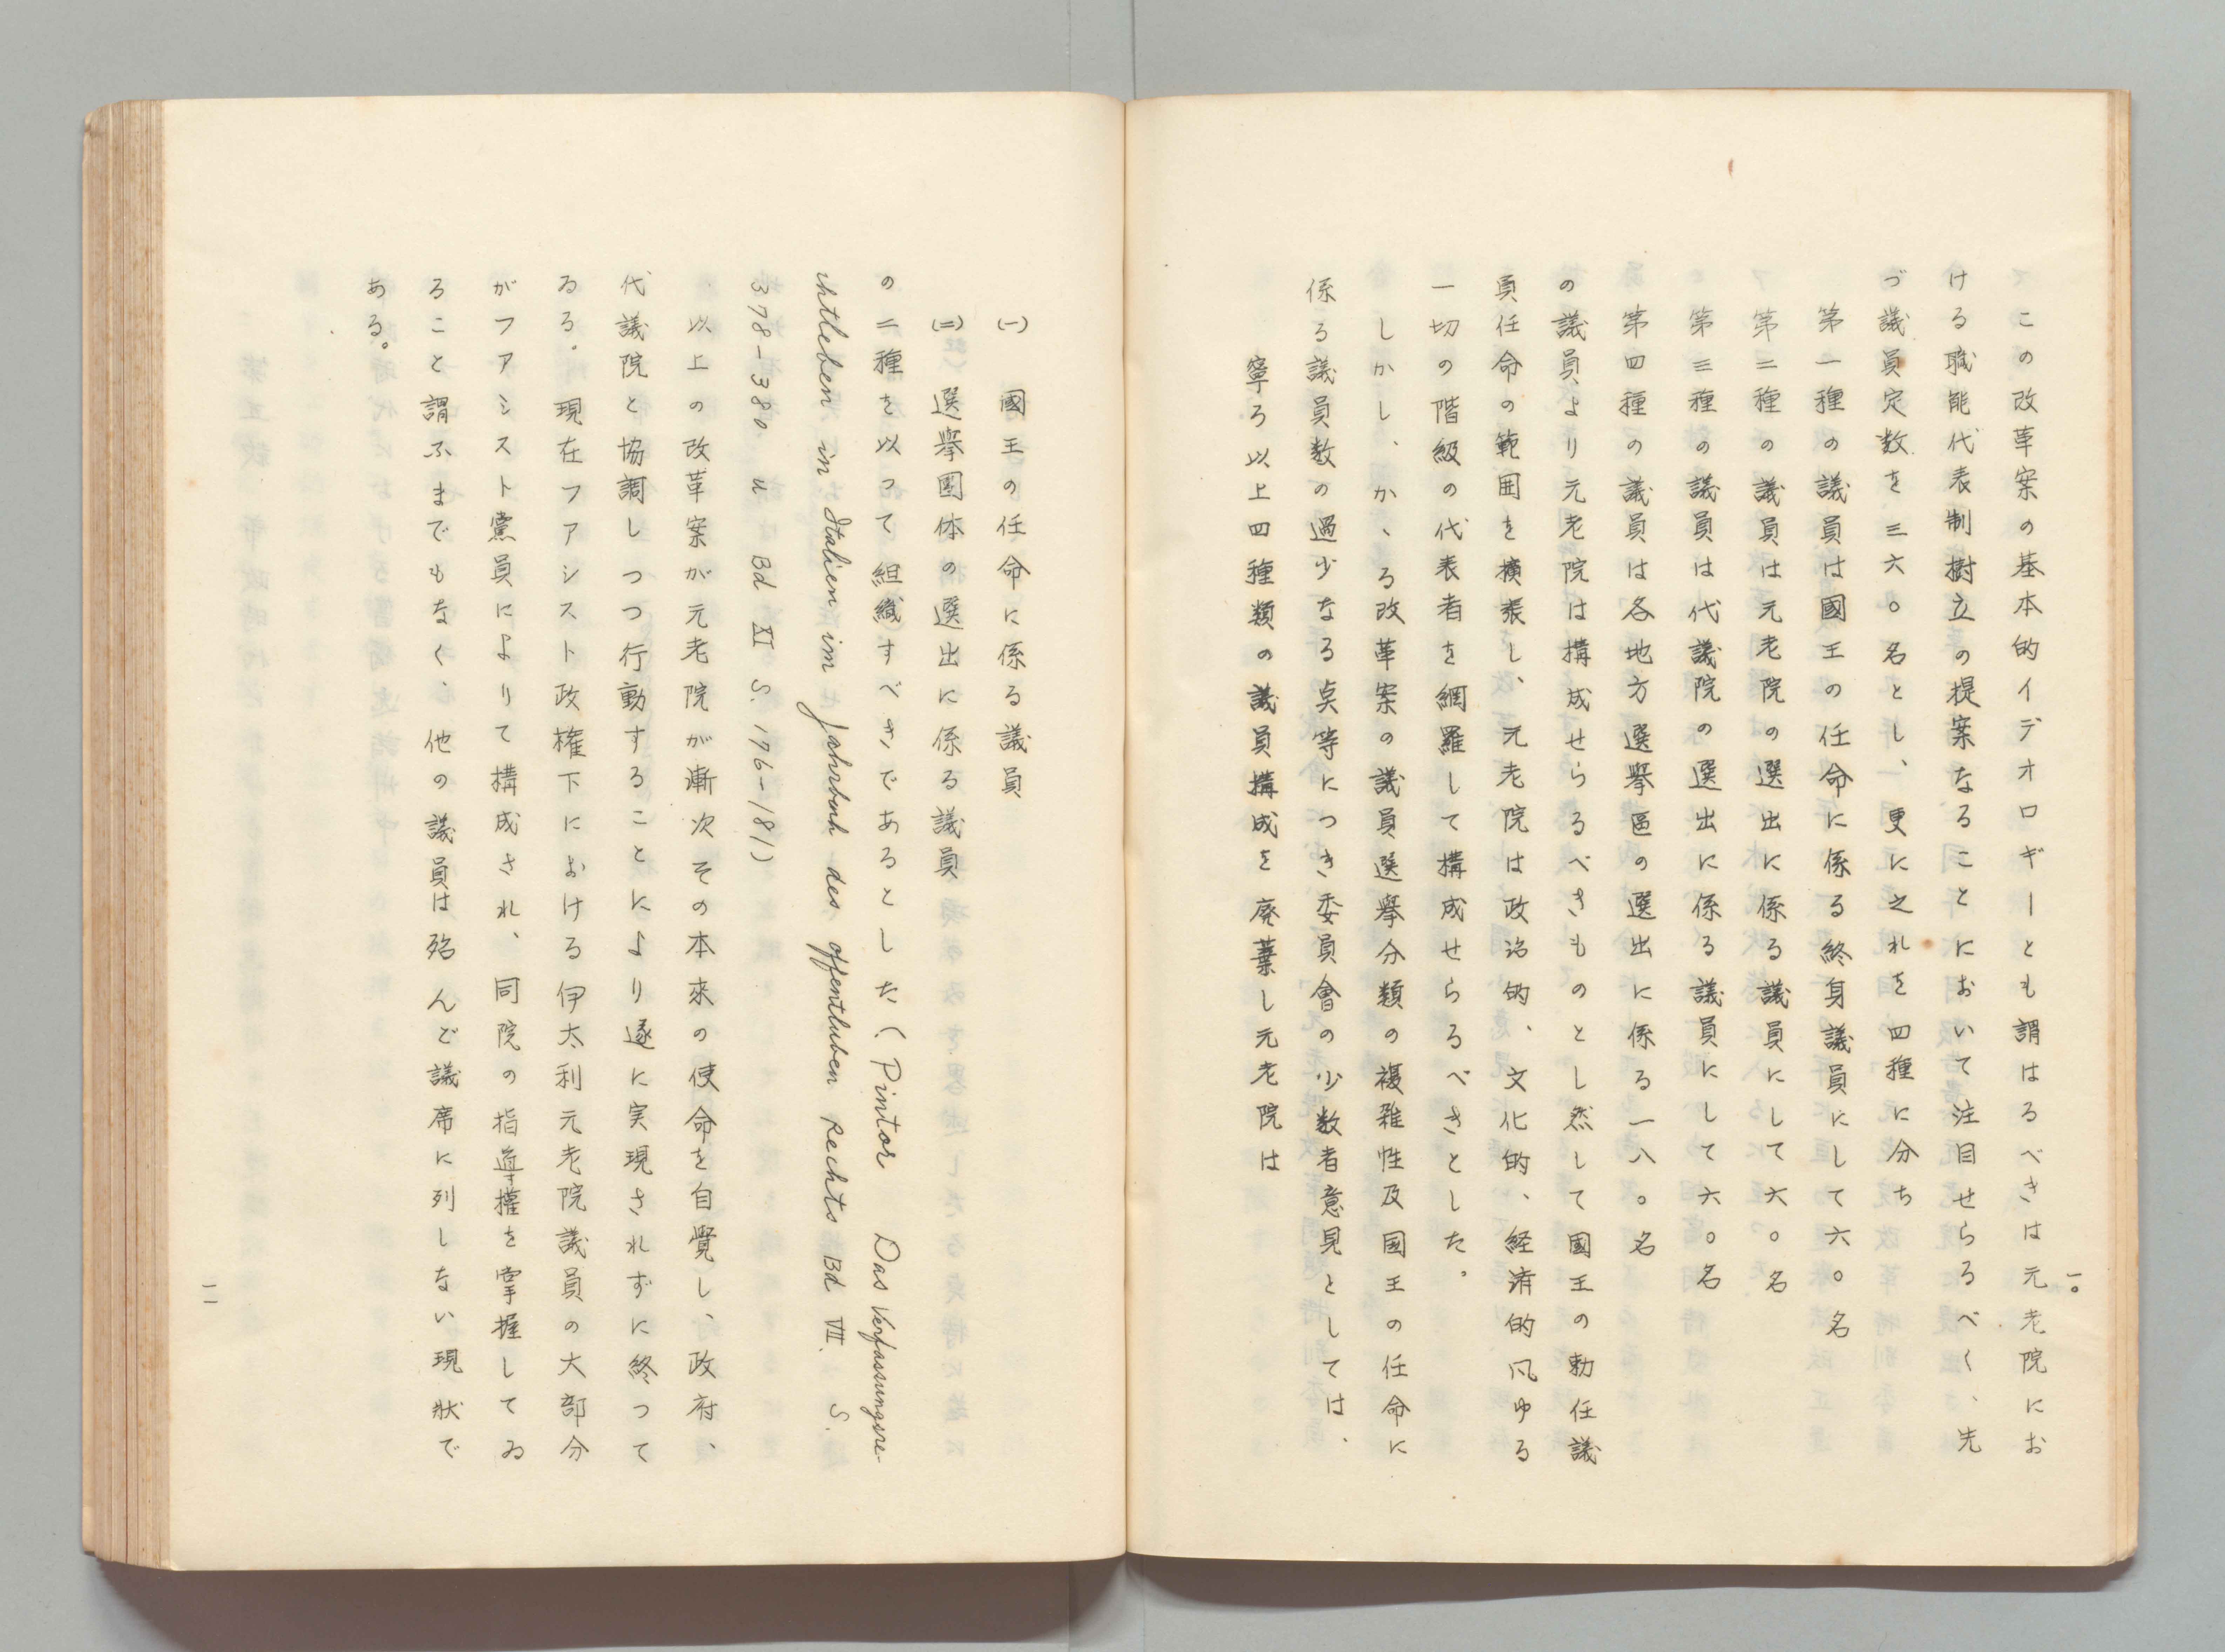 一〇
この改革案の基本的イデオロギーとも謂はるべきは元老院にお
ける職能代表制樹立の提案なることにおいて注目せらるべく、先
づ議員定数を三六〇名とし、更に之れを四種に分ち
第一種の議員は國王の任命に係る終身議員にして六〇名
第二種の議員は元老院の選出に係る議員にして六〇名
第三種の議員は代議院の選出に係る議員にして六〇名
第四種の議員は各地方選挙區の選出に係る一八〇名
の議員より元老院は構成せらるべきものとし然して國王の勅任議
員任命の範囲を擴張し、元老院は政治的、文化的、経済的凡ゆる
一切の階級の代表者を網羅して構成せらるべきとした。
しかし、かゝる改革案の議員選挙分類の複雑性及国王の任命に
係る議員数の過少なる点等につき委員會の少数者意見としては、
寧ろ以上四種類の議員構成を廃棄し元老院は
(一) 國王の任命に係る議員
(二) 選挙團体の選出に係る議員
の二種を以って組織すべきであるとした(Pintor Das Verfassungsre-
chtleben in Italien im Jahrbuch des offentluben Rechts Bd VII. S.
378-380 u Bd XI S. 176-181)
以上の改革案が元老院が漸次その本来の使命を自覺し、政府、
代議院と協調しつつ行動することにより遂に実現されずに終って
ゐる。現在フアシスト政権下における伊太利元老院議員の大部分
がフアシスト黨員によりて構成され、同院の指導權を掌握してゐ
ること謂ふまでもなく、他の議員は殆んど議席に列しない現状で
ある。
一一